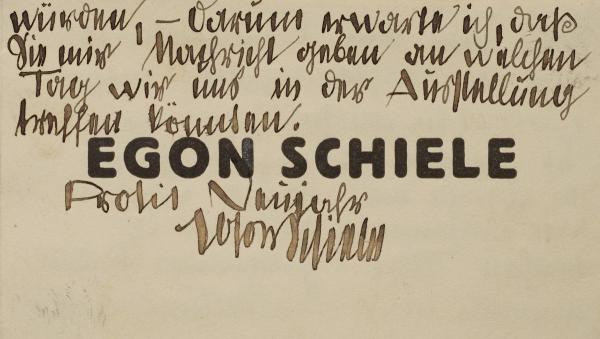 würden, – Darum erwarte ich, daß
Sie mir Nachricht geben an welchen
Tag wir uns in der Ausstellung
treffen könnten.
EGON SCHIELE
Prosit Neujahr
Egon Schiele